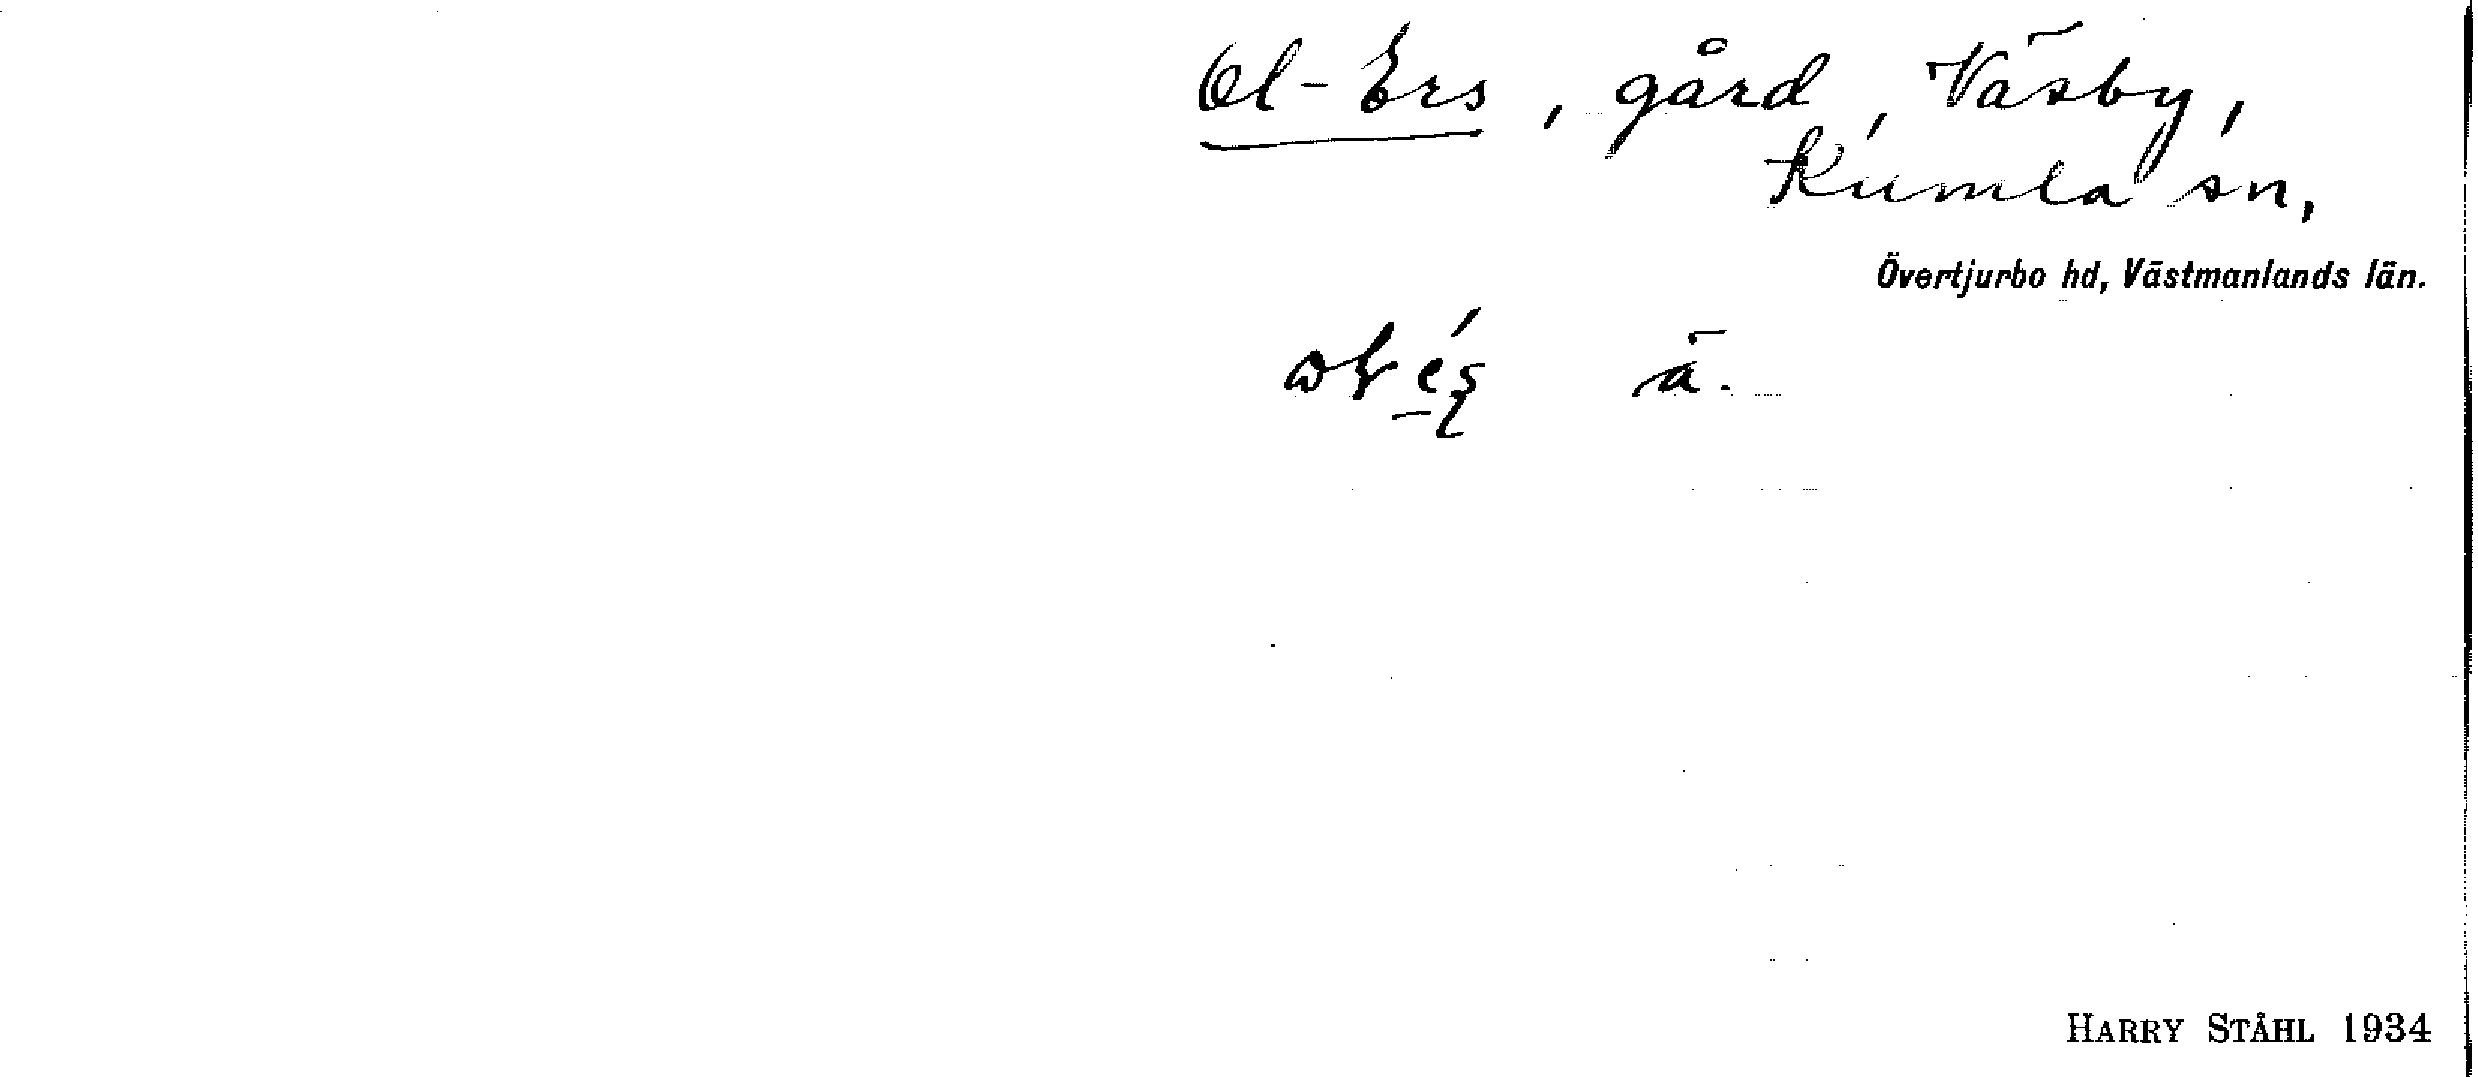 Ol-Ers, gård, Väsby,
Kumla sn,
Övertjurbo hd, Västmanlands län.
ä.
HARRY STÅHL 1934